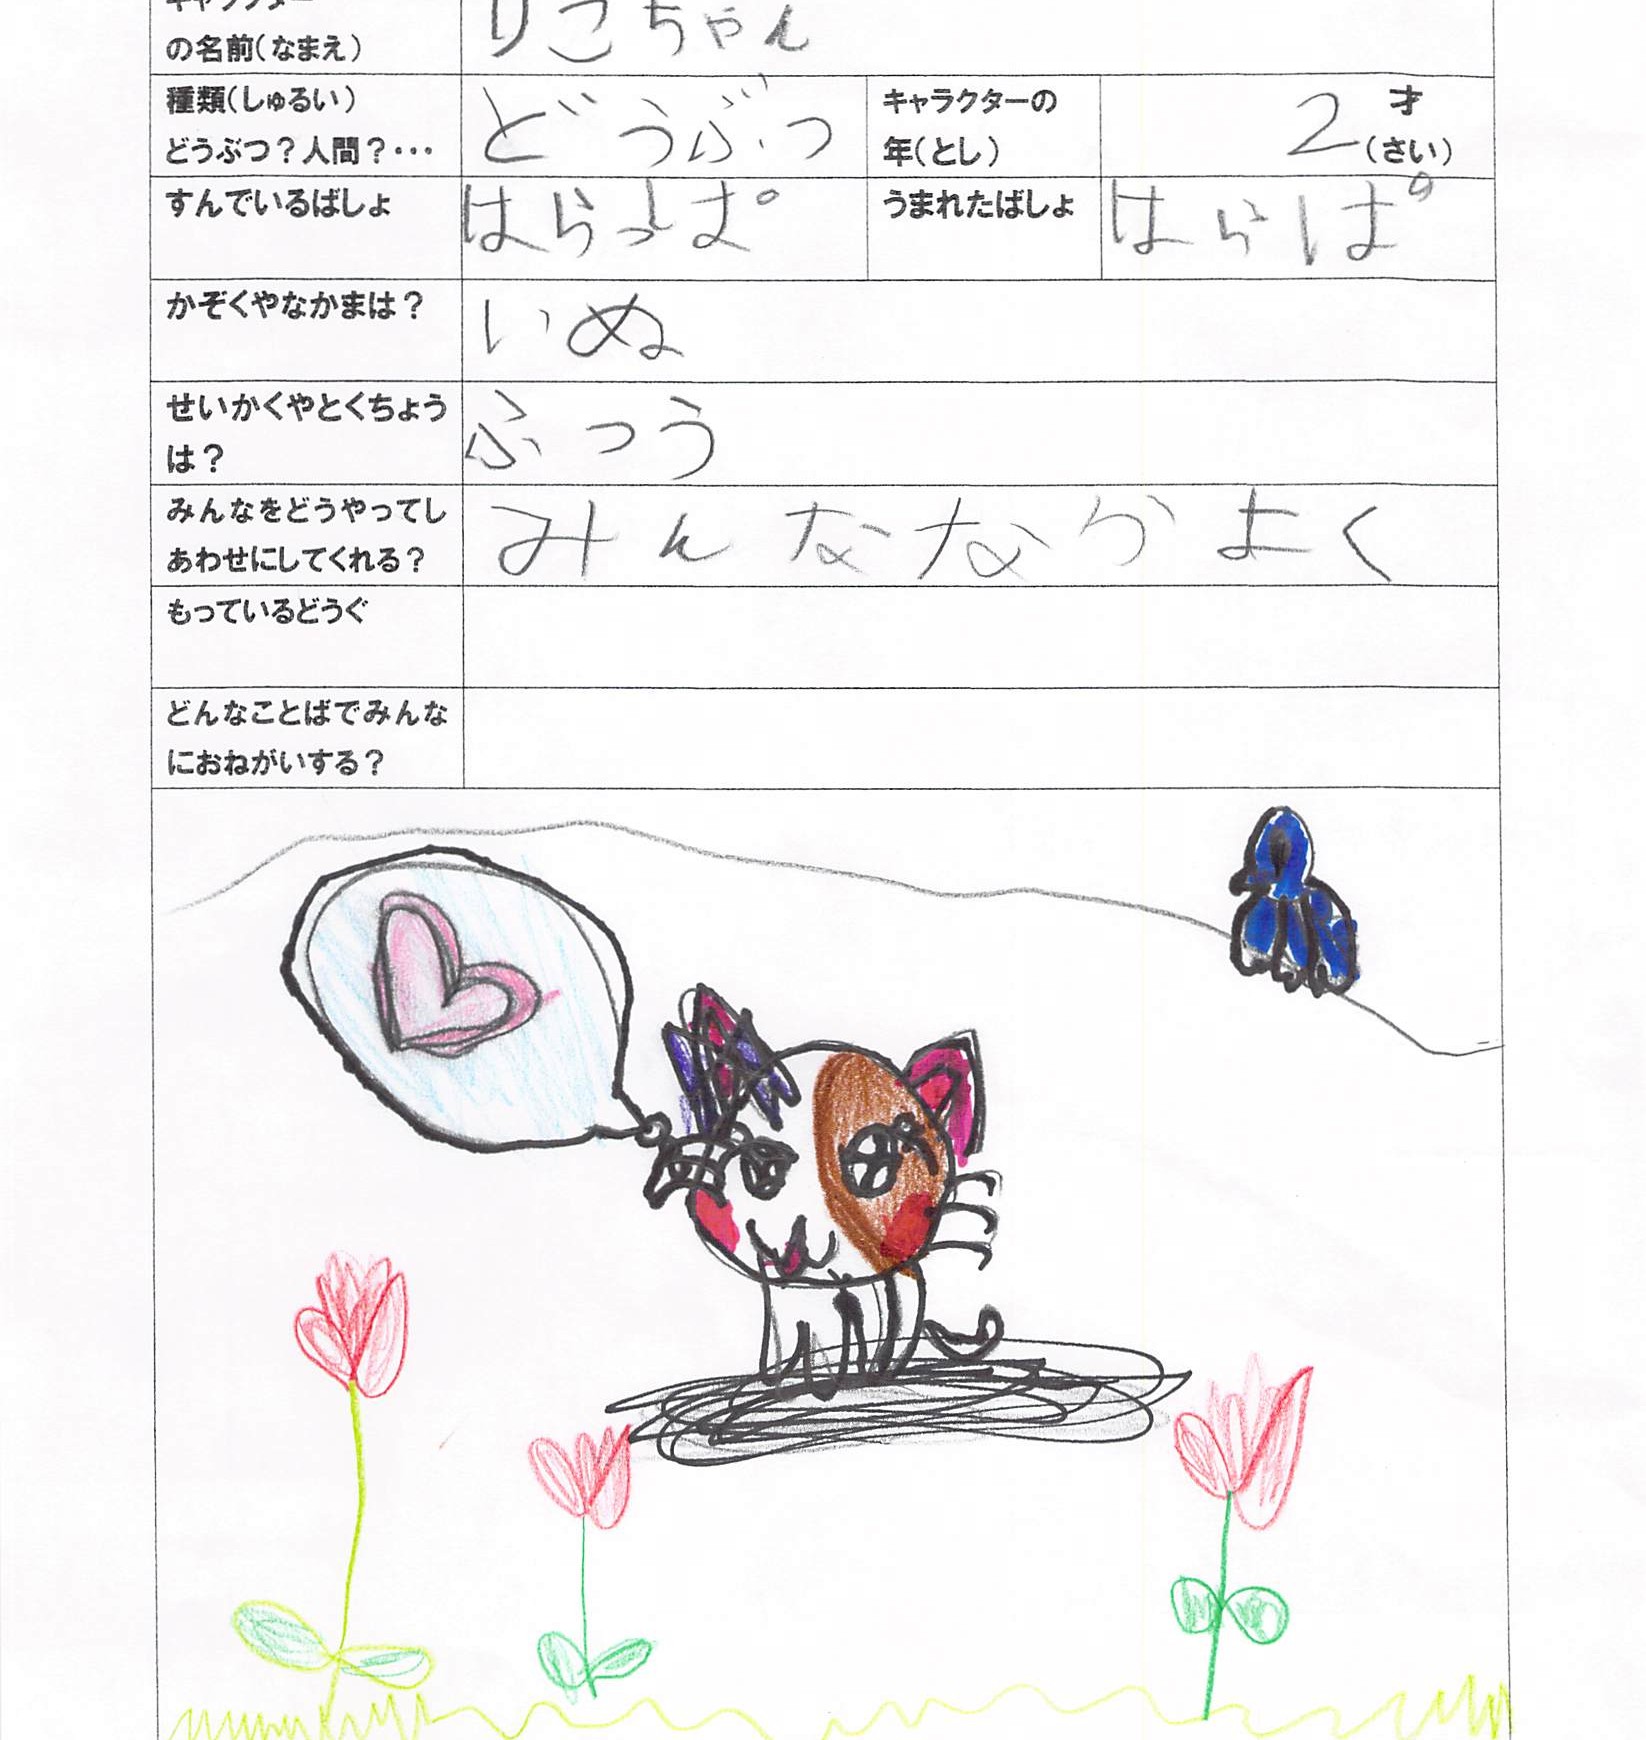 キャラクター
の名前(なまえ)
りこちゃん
種類(しゅるい)
どうぶつ?人間?・・・
どうぶつ
キャラクターの
年(とし)
2才
(さい)
すんでいるばしょ
はらっぱ
うまれたばしょ
はらぱ
かぞくやなかまは?
いぬ
せいかくやとくちょう
は?
ふつう
みんなをどうやってし
あわせにしてくれる?
みんななかよく
もっているどうぐ
どんなことばでみんな
におねがいする?